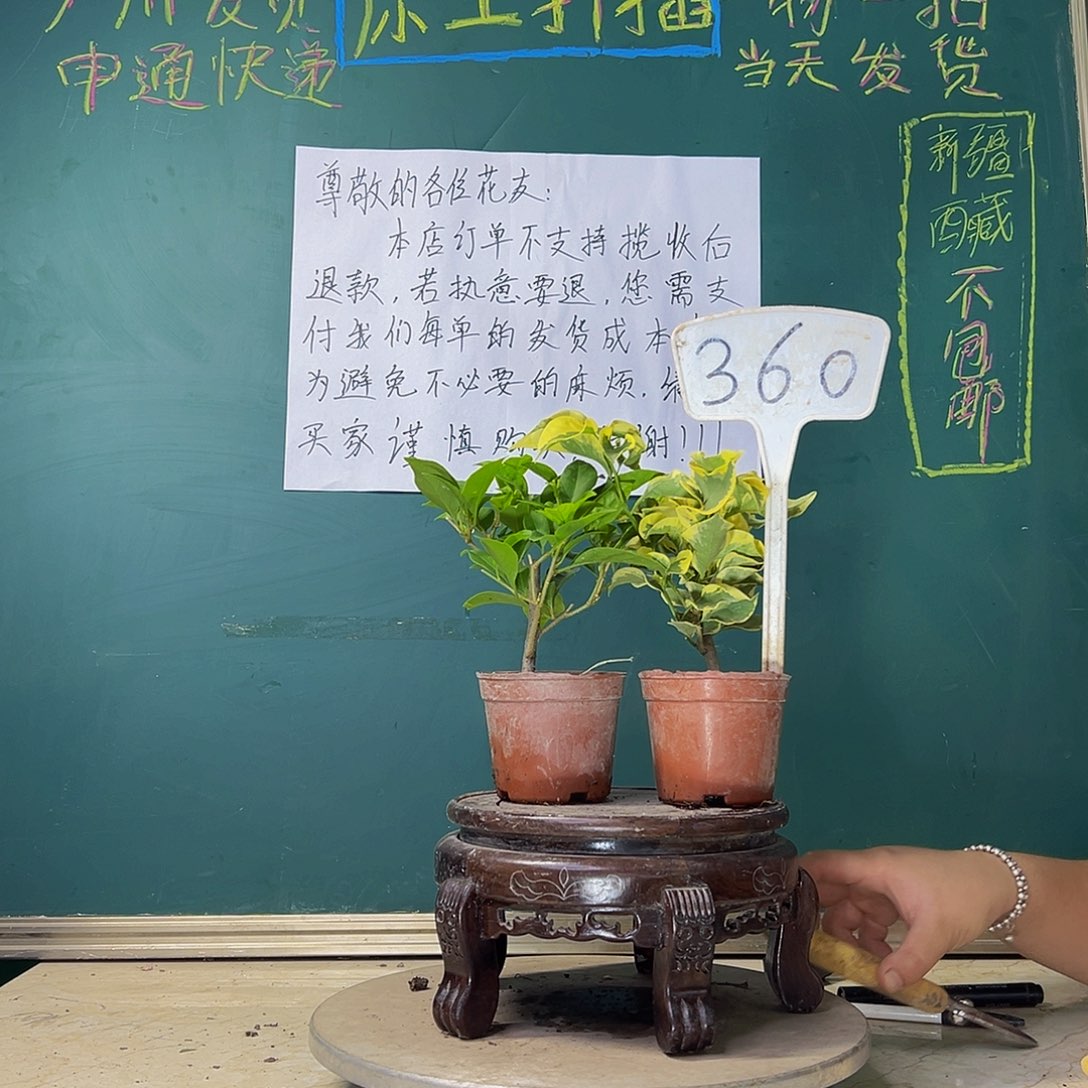 广州发货
原土扦插
物一拍
申通快递
当天发货
新疆
西藏
不包邮
尊敬的各位花友:
本店订单不支持揽收后
退款,若执意要退,您需支
付我们每单的发货成本
为避免不必要的麻烦.
买家谨慎购 谢!!!
360